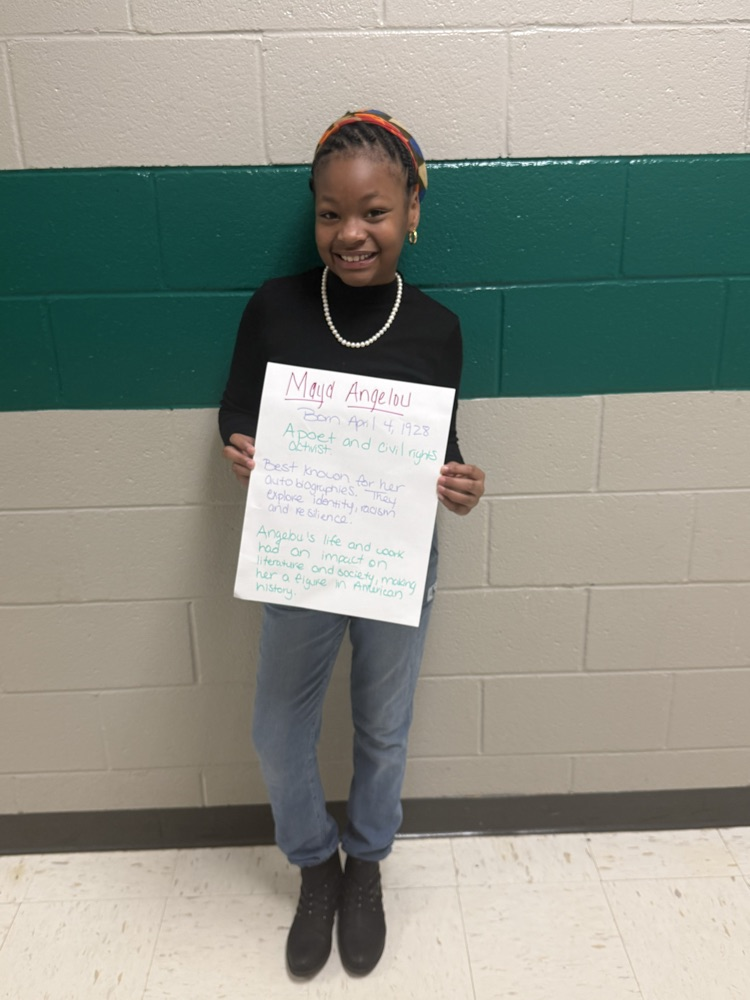 Maya Angelou
Born April 4, 1928
A poet and civil rights
activist.
Best known for her
autobiographies. They
explore identity, racism
and resilience.
Angelou's life and work
had an impact on
literature and society, making
her a figure in American
history.